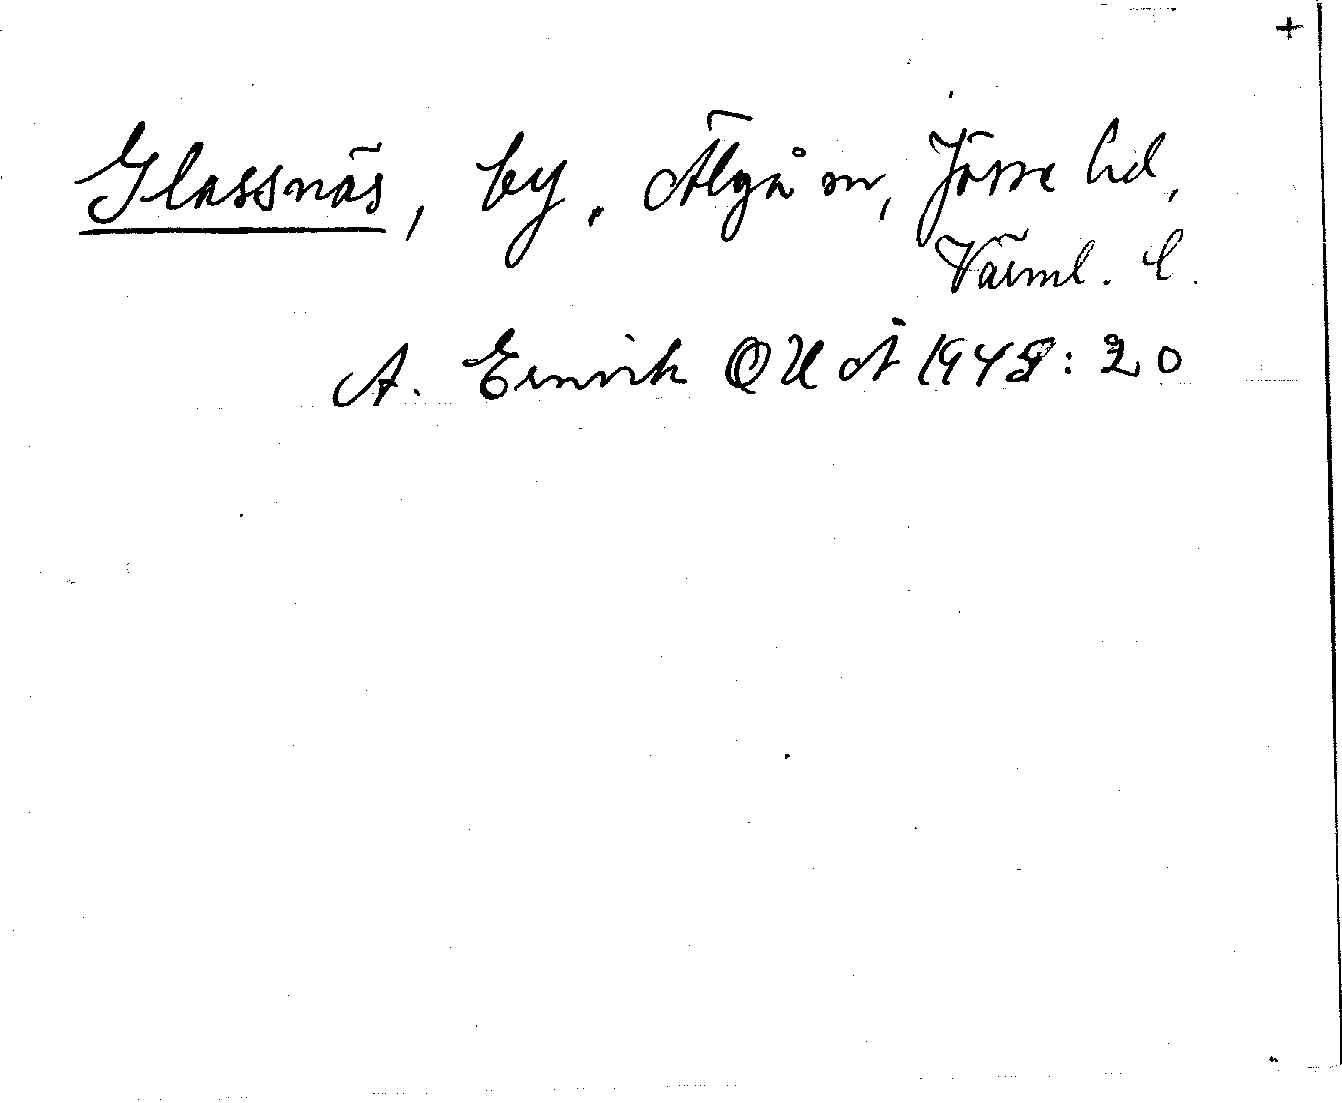 +
Glassnäs, by, Älgå sn, Jösse hd,
Värml. l.
A. Ernvik OUÅ 1948: 20